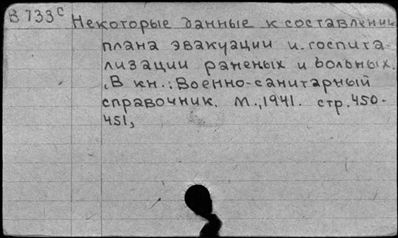 В 733с Некоторые данные к составлению
плана эвакуации и госпита-
лизации раненых и больных.
, В кн.: Военно-санитарный
справочник. М., 1941. стр. 450-
451,